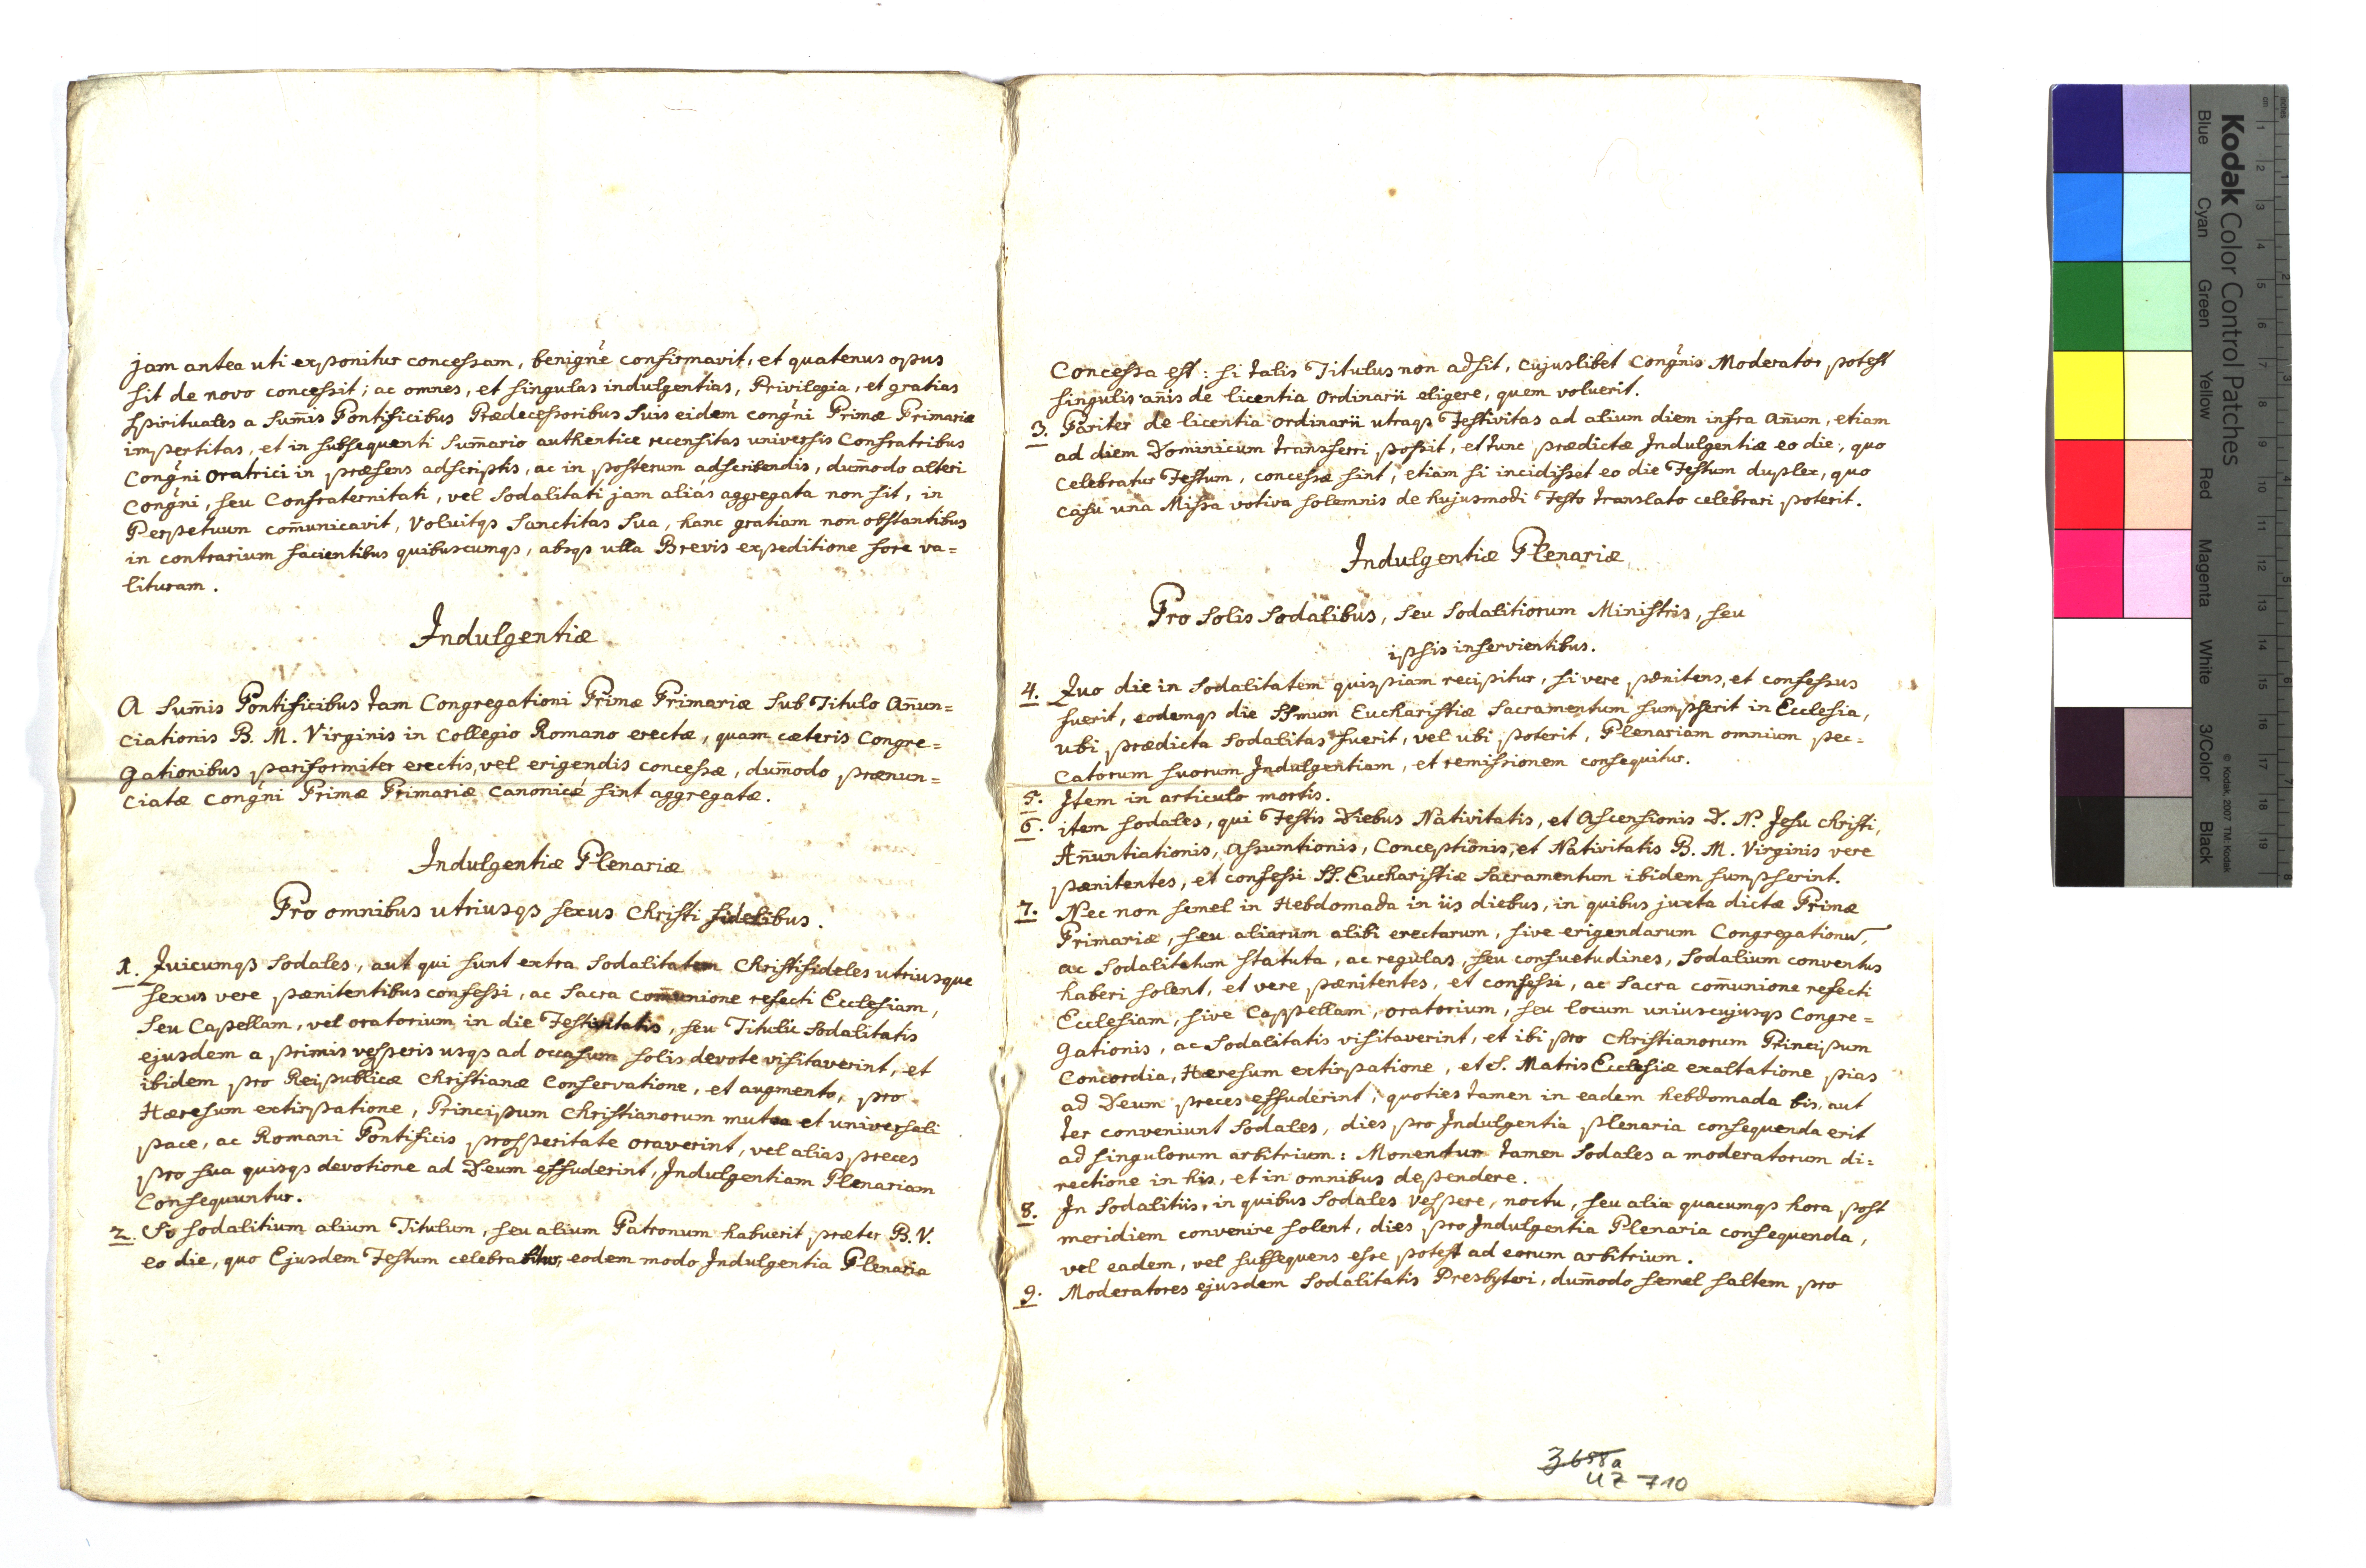 jam antea uti exponitur concessam, benigñe confirmavit, et quatenus opus
sit de novo concessit; ac omnes, et singulas indulgentias, Privilegia, et gratias
spirituales a Sum̄is Pontificibus Prædecessoribus Suis eidem congñi Primæ Primariæ
impertitas, et in subsequenti Sum̄ario authentice recensitas universis Confratribus
Congñi oratrici in præsens adscriptis, ac in posterum adscribendis, dum̄odo alteri
Congñi, seu Confraternitati, vel Sodalitati jam alias aggregata non sit, in
Perpetuum com̄unicavit, Voluitqȝ Sanctitas Sua, hanc gratiam non obstantibus
in contrarium facientibus quibuscumqȝ, absqȝ ulla Brevis expeditione fore va=
lituram.
Indulgentiæ
A Sum̄is Pontificibus tam Congregationi Primæ Primariæ Sub Titulo An̄un=
ciationis B. M. Virginis in Collegio Romano erectæ, quam cæteris Congre=
gationibus pariformiter erectis, vel erigendis concessæ, dum̄odo prænun=
ciatæ congñi Primæ Primariæ canonicé sint aggregatæ.
Indulgentiæ Plenariæ
Pro omnibus utriusqȝ sexus Christi fidelibus.
1. Quicumqȝ Sodales, aut qui sunt extra Sodalitatem Christifideles utriusque
sexus vere pænitentibus confessi, ac Sacra com̄unione refecti Ecclesiam,
Seu Capellam, vel oratorium in die Festivitatis, seu Tituli Sodalitatis
ejusdem a primis vesperis usqȝ ad occasum solis devote visitaverint, et
ibidem pro Reipublicæ Christianæ Conservatione, et augmento, pro
Hæresum extirpatione, Principum Christianorum mutea et universali
pace, ac Romani Pontificis prosperitate oraverint, vel alias preces
pro sua quisqȝ devotione ad Deum effuderint, Indulgentiam Plenariam
Consequuntur.
2. Si sodalitium alium Titulum, seu alium Patronum habuerit præter B. V.
eo die, quo Ejusdem Festum celebrabitur, eodem modo Indulgentia Plenaria
Concessa est: si talis Titulus non adsit, cujuslibet Congñis Moderator potest
singulis an̄is de licentia ordinarii eligere, quem voluerit.
3. Pariter de licentia ordinarii utraqȝ Festivitas ad alium diem infra An̄um, etiam
ad diem Dominicum transferri possit, et tunc prædictæ Indulgentiæ eo die, quo
celebratur Festum, concessæ sint, etiam si incidisset eo die Festum duplex, quo
casu una Missa votiva solemnis de hujusmodi Festo translato celebrari poterit.
Indulgentiæ Plenariæ
Pro Solis Sodalibus, Seu Sodalitiorum Ministris, seu
ipsis inservientibus.
4. Quo die in Sodalitatem quispiam recipitur, si vere pænitens, et confessus
fuerit, eodemqȝ die SSmum Eucharistiæ Sacramentum sumpserit in Ecclesia,
ubi prædicta Sodalitas fuerit, vel ubi poterit, Plenariam omnium pec=
catorum suorum Indulgentiam, et remissionem consequitur.
5. Item in articulo mortis.
6. item Sodales, qui Festis Diebus Nativitatis, et Ascensionis D. N. Jesu Christi,
An̄untiationis, Assumtionis, Conceptionis, et Nativitatis B. M. Virginis vere
pænitentes, et confessi SS. Eucharistiæ Sacramentum ibidem sumpserint.
7. Nec non semel in Hebdomada in iis diebus, in quibus juxta dictæ Primæ
Primariæ, seu aliarum alibi erectarum, sive erigendarum Congregationū,
ac Sodalitatum Statuta, ac regulas, seu consuetudines, Sodalium conventus
haberi solent, et vere pænitentes, et confessi, ac Sacra com̄unione refecti
Ecclesiam, sive Cappellam, oratorium, seu locum uniuscujusqȝ Congre=
gationis, ac Sodalitatis visitaverint, et ibi pro Christianorum Principum
Concordia, Hæresum extirpatione, et S. Matris Ecclesiæ exaltatione pias
ad Deum preces effuderint; quoties tamen in eadem hebdomada bis, aut
ter conveniunt Sodales, dies pro Indulgentia plenaria consequenda erit
ad singulorum arbitrium: Monentur tamen Sodales a moderatorum di=
rectione in his, et in omnibus dependere.
8. In Sodalitiis, in quibus Sodales Vespere, noctu, seu alia quacumqȝ hora post
meridiem convenire solent, dies pro Indulgentia Plenaria consequenda,
vel eadem, vel subsequens esse potest ad eorum arbitrium.
9. Moderatores ejusdem Sodalitatis Presbyteri, dum̄odo semel saltem pro
3658a
UZ 710
Kodak Color Control Patches
Blue Cyan Green Yellow Red Magenta White 3/Color Black
© Kodak, 2007 TM: Kodak
cm 1 2 3 4 5 6 7 8 9 10 11 12 13 14 15 16 17 18 19
inches 1 2 3 4 5 6 7 8